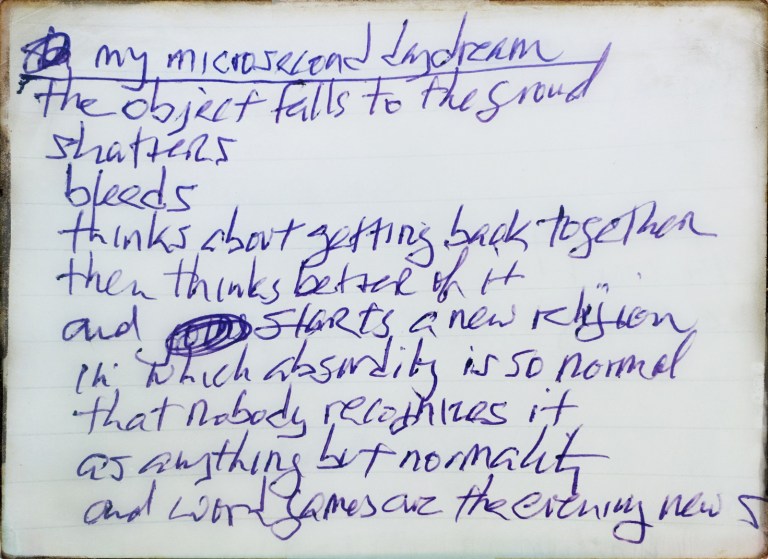 my microsecond daydream
the object falls to the groud
shatters
bleeds
thinks about getting back together
then thinks better of it
and starts a new religion
in which absurdity is so normal
that nobody recognizes it
as anything but normality
and word games are the evening news